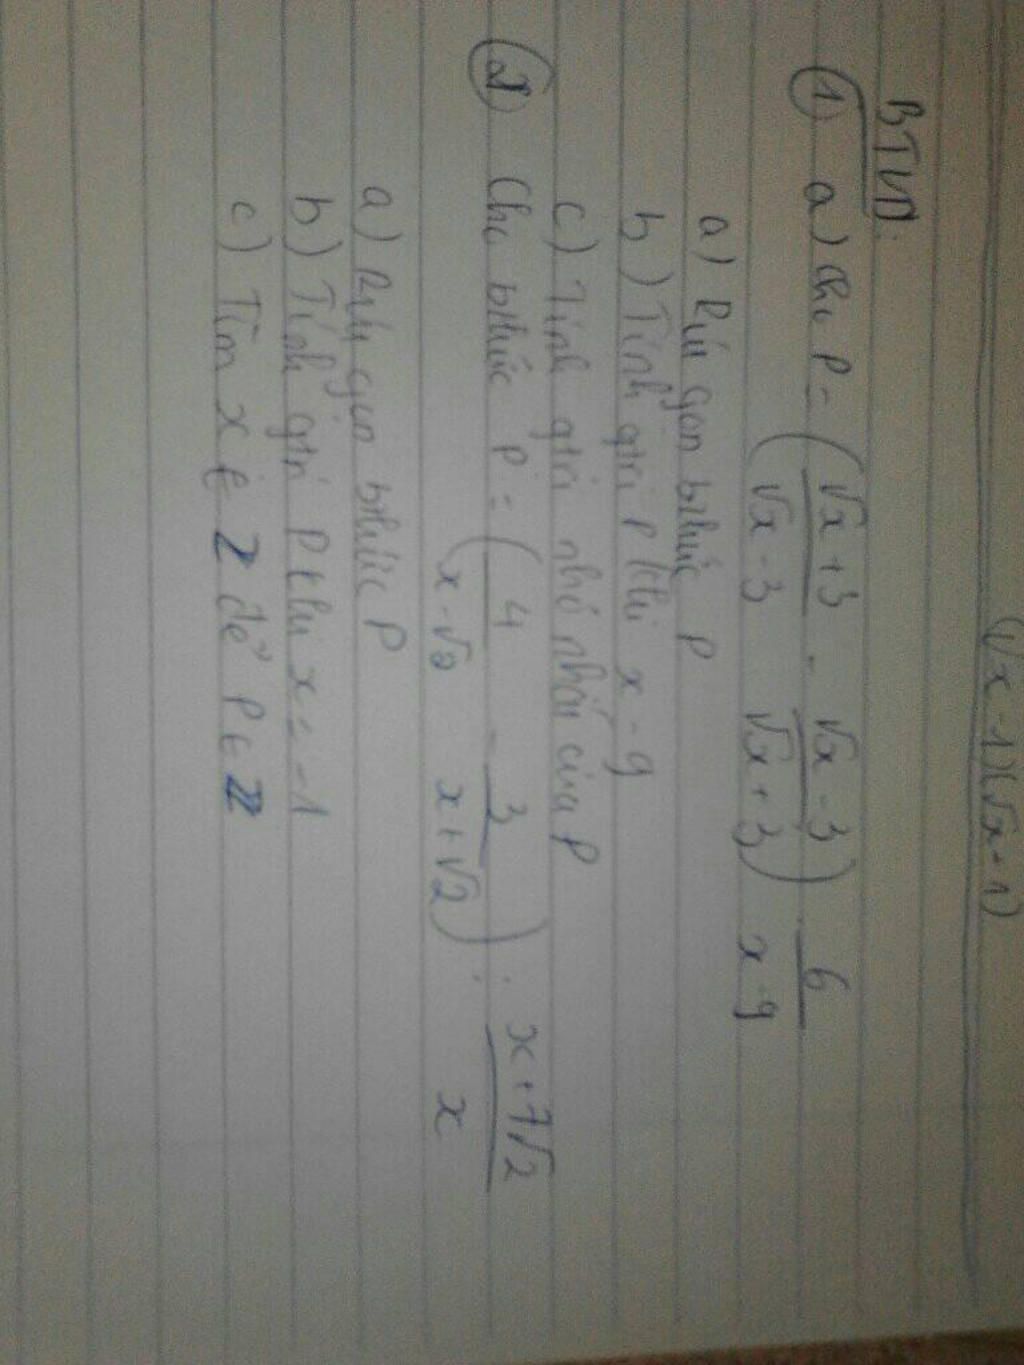 (√x - 1)(√x + 1)
BTVN.
① a) Cho P = (√x + 3 / √x - 3 - √x - 3 / √x + 3) . 6 / x - 9
a) Rút gọn bthức P
b) Tính gtrị P khi x = 9
c) Tính gtrị nhỏ nhất của P
② Cho bthức P = (4 / x - √2 - 3 / x + √2) : x + 7√2 / x
a) Rút gọn bthức P
b) Tính gtrị P khi x = -1
c) Tìm x ∈ Z để P ∈ Z